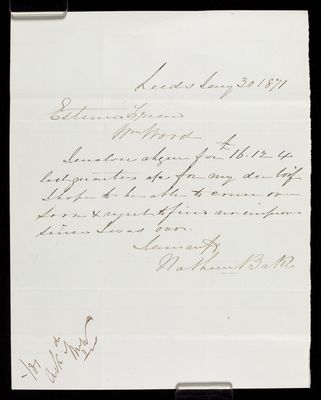 Leeds Jany 30 1871
Esteemd Friend
Wm Wood
I enclose cheque for £16.12.4
last quarters a/c for my dear wife
I hope to be able to come over
soon & regret to find no improve
since I was over.
Nathan
ackd